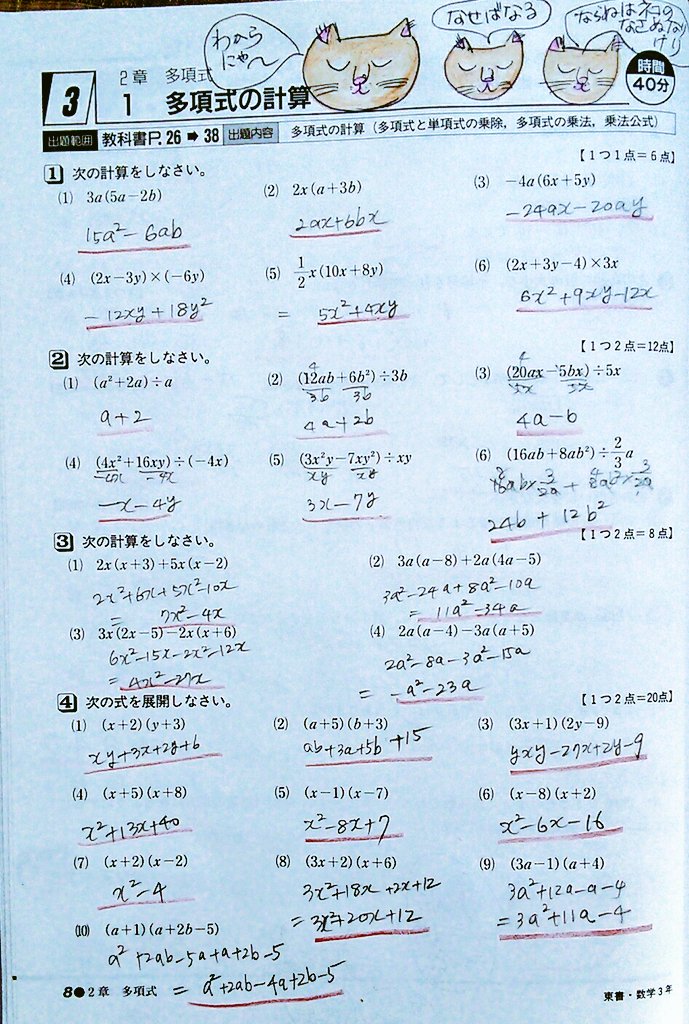 わから
にゃ〜
なせばなる
ならねはネコの
なさぬなり
けり
3
2章 多項式
1 多項式の計算
時間
40分
出題範囲 教科書P.26➡38 出題内容 多項式の計算(多項式と単項式の乗除,多項式の乗法,乗法公式)
1 次の計算をしなさい。
【1つ1点=6点】
(1) 3a(5a−2b) (2) 2x(a+3b) (3) −4a(6x+5y)
15a²−6ab 2ax+6bx −24ax−20ay
(4) (2x−3y)×(−6y) (5) 1/2x(10x+8y) (6) (2x+3y−4)×3x
−12xy+18y² = 5x²+4xy 6x²+9xy−12x
2 次の計算をしなさい。
【1つ2点=12点】
(1) (a²+2a)÷a (2) (12ab+6b²)÷3b (3) (20ax−5bx)÷5x
4 4
3b 3b 5x 5x
a+2 4a+2b 4a−b
(4) (4x²+16xy)÷(−4x) (5) (3x²y−7xy²)÷xy (6) (16ab+8ab²)÷2/3a
−4x −4x xy xy
−x−4y 3x−7y 24b+12b²
3 次の計算をしなさい。
【1つ2点=8点】
(1) 2x(x+3)+5x(x−2) (2) 3a(a−8)+2a(4a−5)
2x²+6x+5x²−10x 3a²−24a+8a²−10a
= 7x²−4x = 11a²−34a
(3) 3x(2x−5)−2x(x+6) (4) 2a(a−4)−3a(a+5)
6x²−15x−2x²−12x 2a²−8a−3a²−15a
= 4x²−27x = −a²−23a
4 次の式を展開しなさい。
【1つ2点=20点】
(1) (x+2)(y+3) (2) (a+5)(b+3) (3) (3x+1)(2y−9)
xy+3x+2y+6 ab+3a+5b+15 yxy−27x+2y−9
(4) (x+5)(x+8) (5) (x−1)(x−7) (6) (x−8)(x+2)
x²+13x+40 x²−8x+7 x²−6x−16
(7) (x+2)(x−2) (8) (3x+2)(x+6) (9) (3a−1)(a+4)
x²−4 3x²+18x+2x+12 3a²+12a−a−4
=3x²+20x+12 =3a²+11a−4
(10) (a+1)(a+2b−5)
a²+2ab−5a+a+2b−5
= a²+2ab−4a+2b−5
8●2章 多項式
東書・数学3年